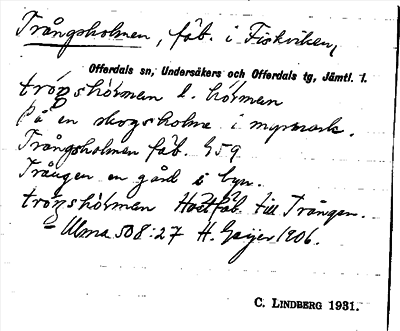 Trångsholmen, fäb. i Fiskviken,
Offerdals sn, Undersåkers och Offerdals tg, Jämtl. l.
tróŋshòḷmen l. hòḷmen
På en skogsholme i myrmark.
Trångsholmen fäb. 459
Trången en gård i byn.
tróŋshòḷmen Höstfäb. till Trången.
= Ulma 508:27 H. Geijer 1906.
C. LINDBERG 1931.